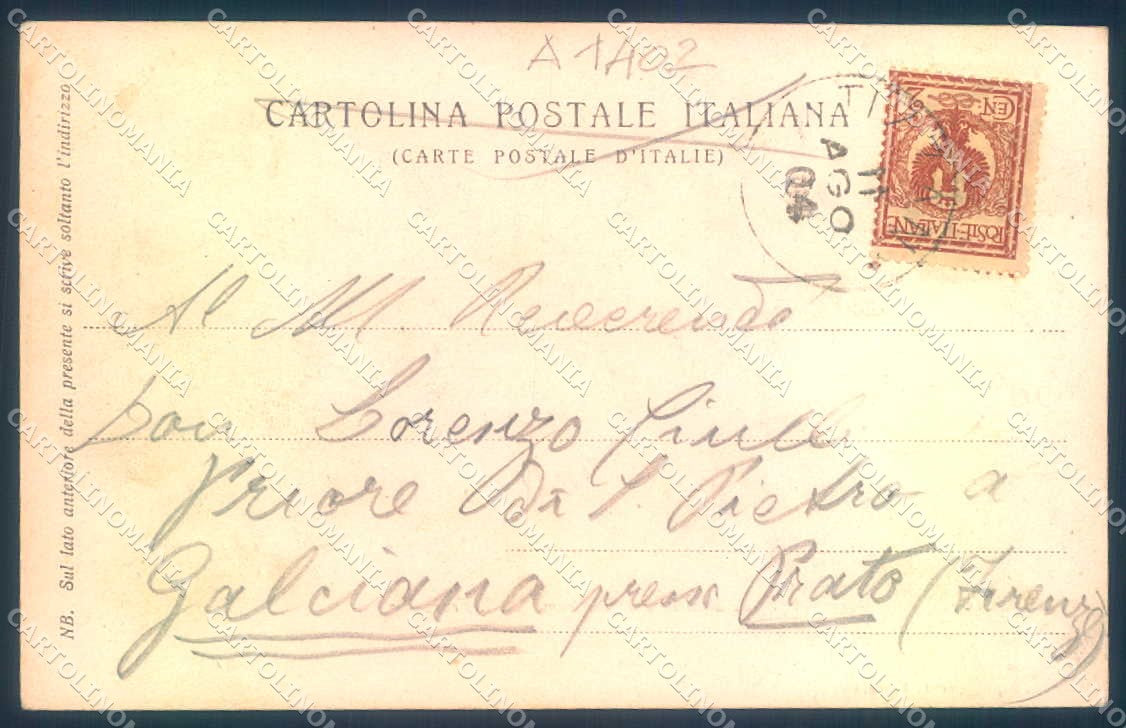 A1402
CARTOLINA POSTALE ITALIANA
(CARTE POSTALE D'ITALIE)
11
AGO
04
CEN 2
POSTE·ITALIANE
NB. Sul lato anteriore della presente si scrive soltanto l'indirizzo
Al M. Reverendo
Don Lorenzo
Priore di S. Pietro a
Galciana presso Prato (Firenze)
CARTOLINOMANIA